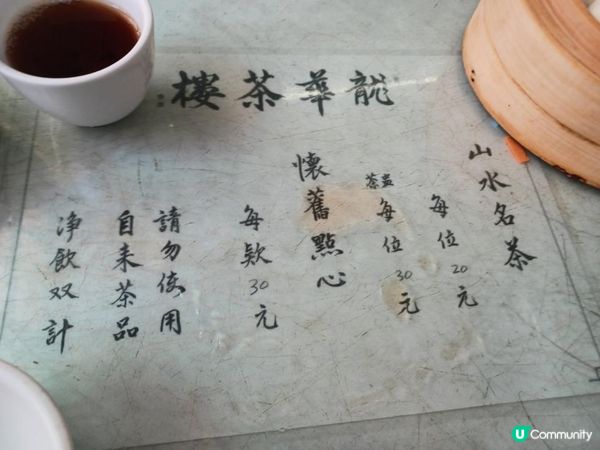 龍華茶樓
山水名茶
每位20元
茶盅每位30元
懷舊點心
每款30元
請勿使用
自来茶品
净飲双計
U Community